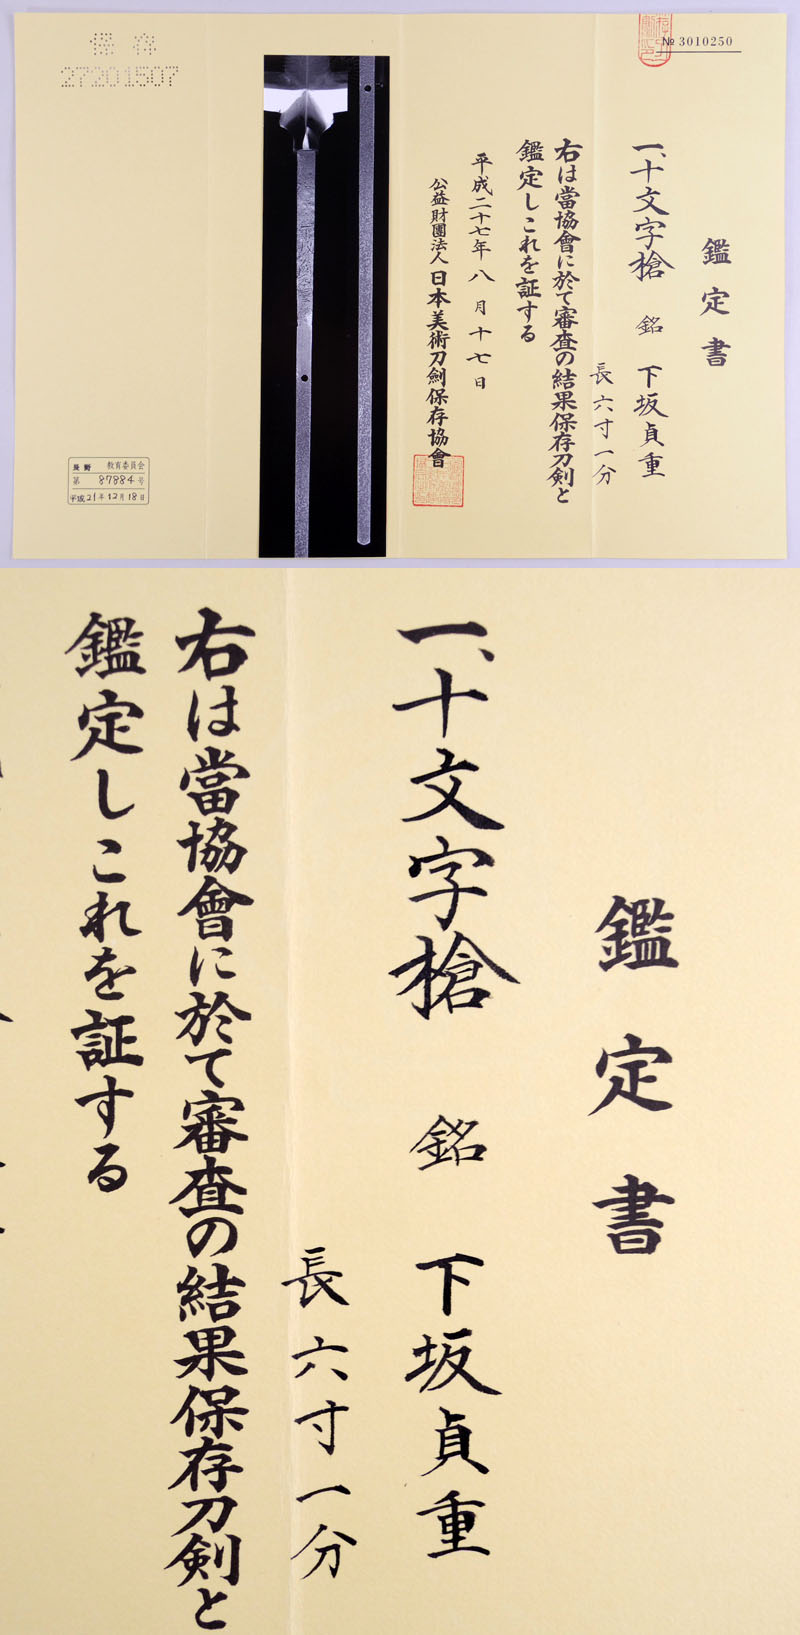 № 3010250
鑑定書
一、十文字槍 銘 下坂貞重
長六寸一分
右は當協會に於て審査の結果保存刀剣と
鑑定しこれを証する
平成二十七年八月十七日
公益財團法人 日本美術刀劍保存協會
保存
27201507
長野 教育委員会
第 87884 号
平成 21年 12月 18日
鑑定書
一、十文字槍 銘 下坂貞重
長六寸一分
右は當協會に於て審査の結果保存刀剣と
鑑定しこれを証する